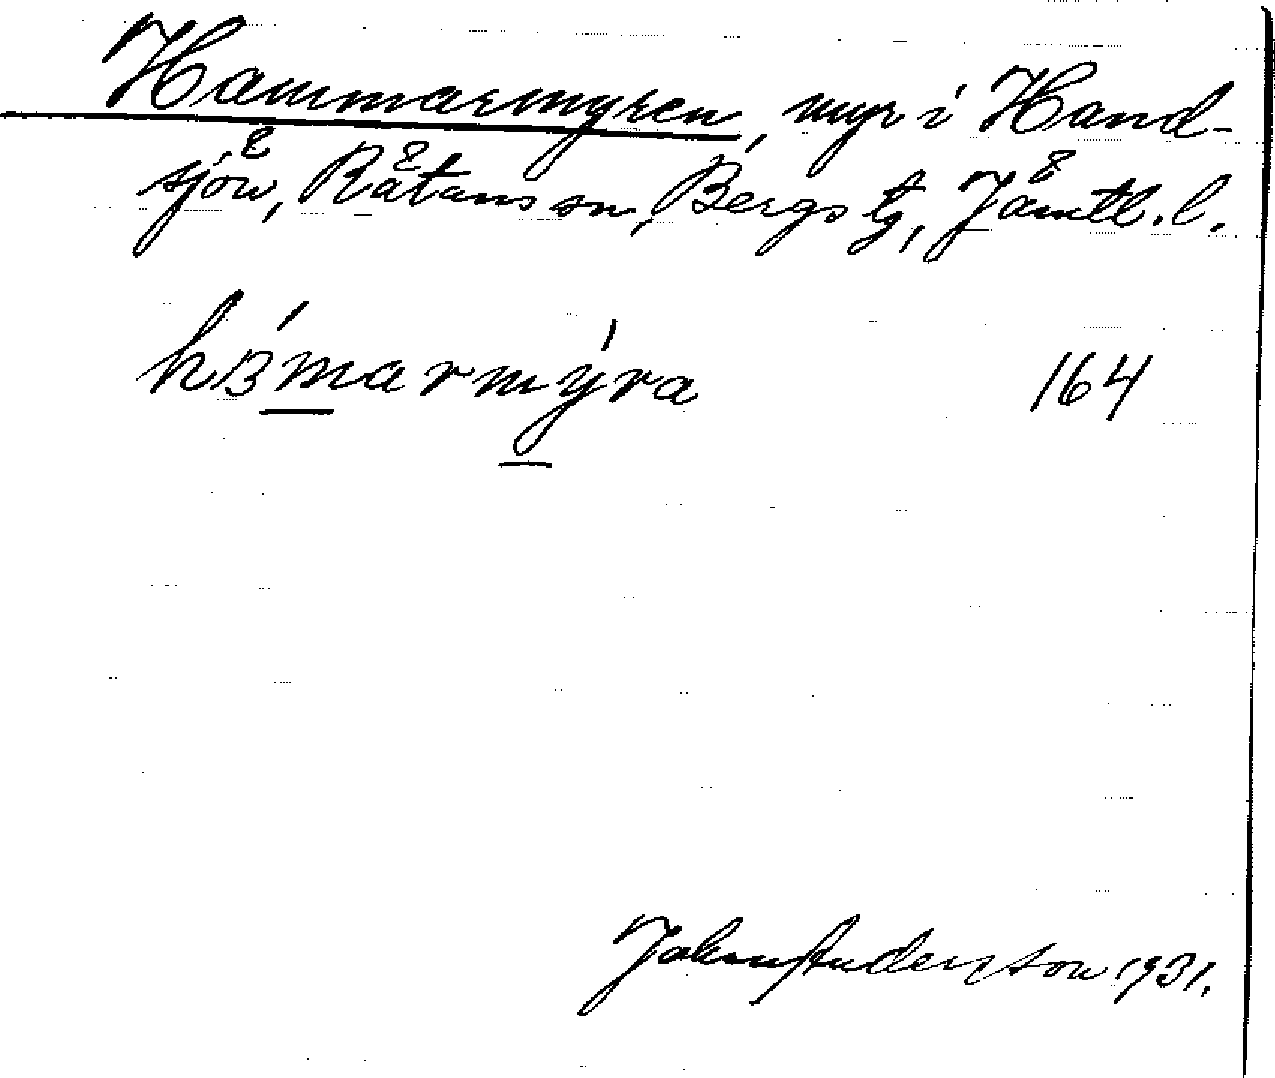 Hammarmyren, myr i Hand-
sjön, Rätans sn, Bergs tg, Jämtl. l.
hɜ́marmýra 164
John Anderson 1931.